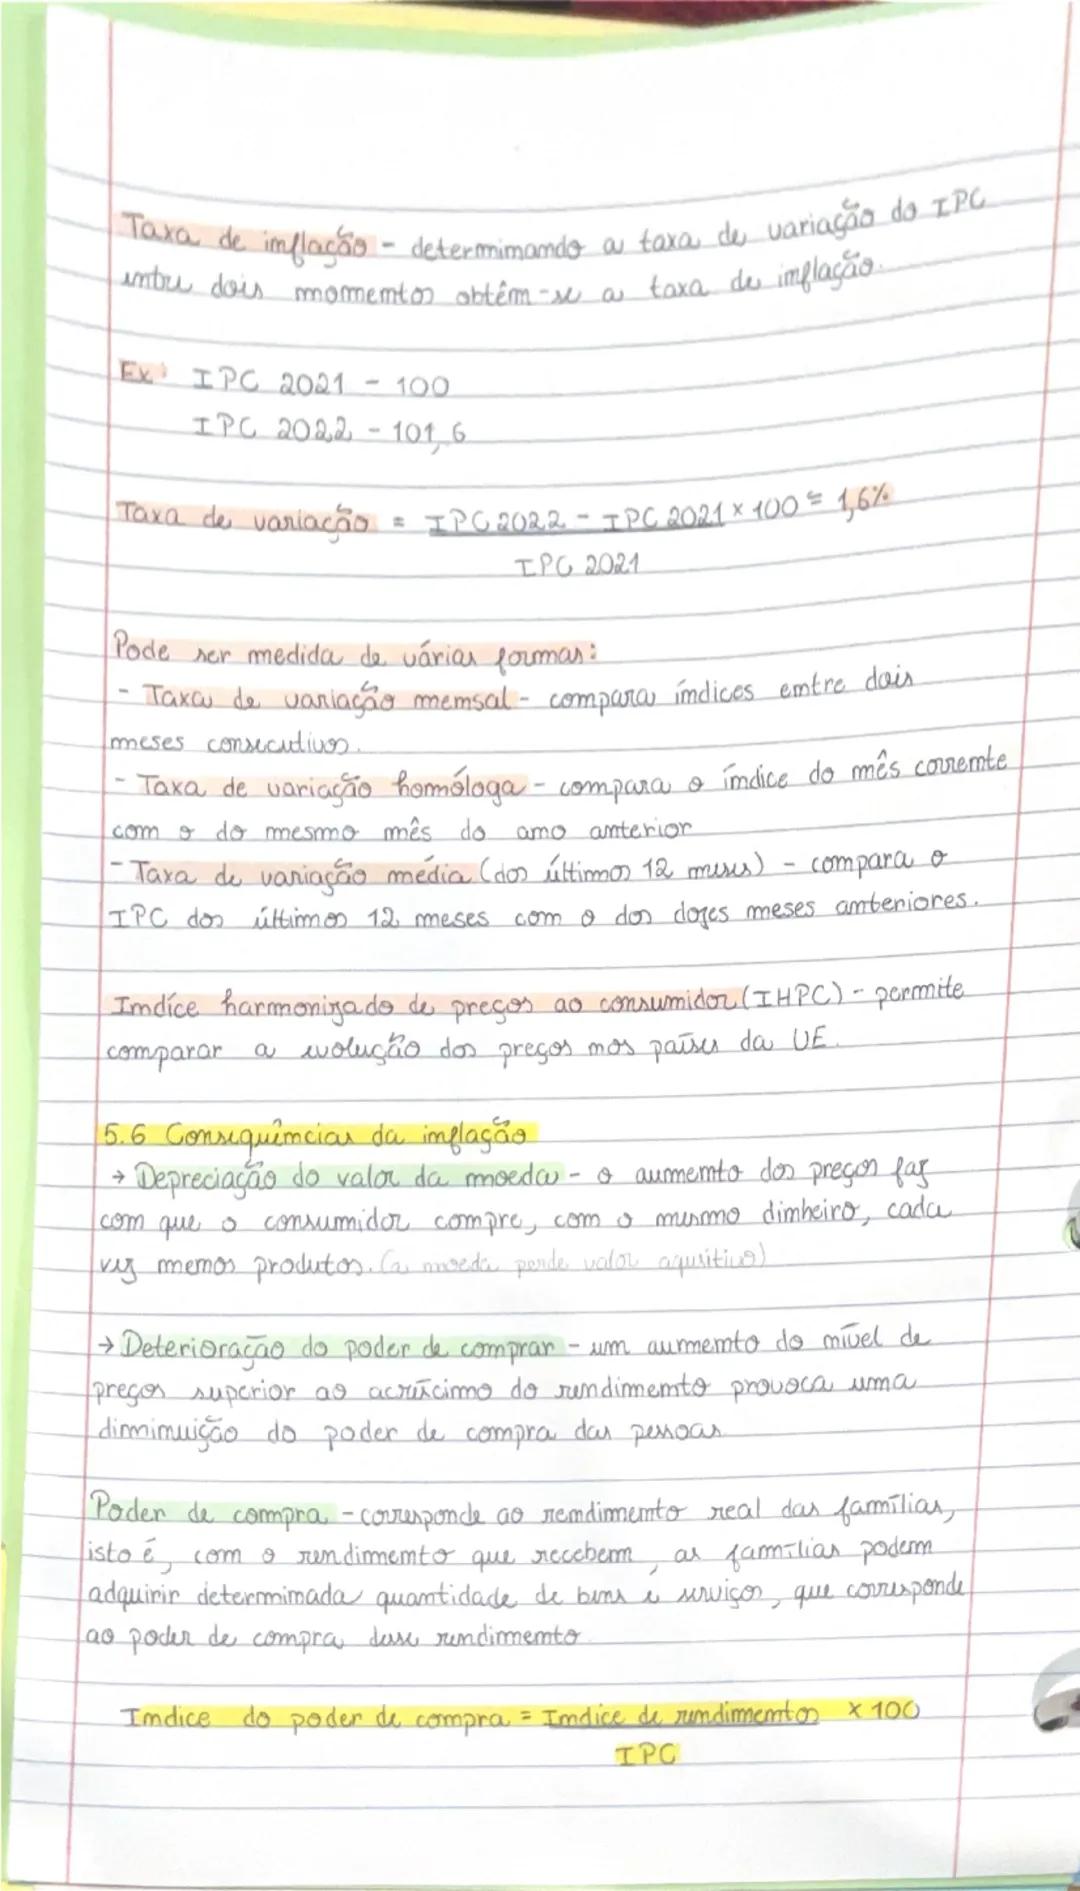 Taxa de inflação - determinando a taxa de variação do IPC
entre dois momentos obtêm-se a taxa de inflação.
Ex: IPC 2021 - 100
IPC 2022 - 101,6
Taxa de variação = IPC 2022 - IPC 2021 × 100 = 1,6%
IPC 2021
Pode ser medida de várias formas:
- Taxa de variação mensal - compara índices entre dois
meses consecutivos.
- Taxa de variação homóloga - compara o índice do mês corrente
com o do mesmo mês do ano anterior
- Taxa de variação média (dos últimos 12 meses) - compara o
IPC dos últimos 12 meses com o dos dozes meses anteriores.
Indíce harmonizado de preços ao consumidor (IHPC) - permite
comparar a evolução dos preços nos países da UE.
5.6 Consequências da inflação
→ Depreciação do valor da moeda - o aumento dos preços faz
com que o consumidor compre, com o mesmo dinheiro, cada
vez menos produtos. (a moeda perde valor aquisitivo)
→ Deterioração do poder de comprar - um aumento do nível de
preços superior ao acréscimo do rendimento provoca uma
diminuição do poder de compra das pessoas
Poder de compra - corresponde ao rendimento real das famílias,
isto é, com o rendimento que recebem, as famílias podem
adquirir determinada quantidade de bens e serviços, que corresponde
ao poder de compra desse rendimento
Indice do poder de compra = Indice de rendimentos × 100
IPC